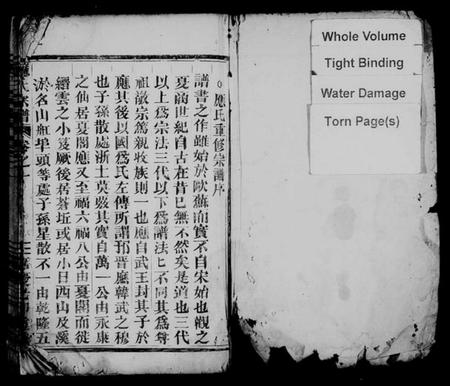 ○應氏重修宗譜序
譜書之作雖始於歐蘇而實不自宋始也觀之
夏商世紀自古在昔已無不然矣是道也三代
以上爲宗法三代以下爲譜法匕不同其爲尊
祖敬宗篤親收族則一也應自武王封其子於
應其後以國爲氏左傳所謂邗晉應韓武之穆
也子孫散處浙土莫攷其實自萬一公由永康
之仙居夏閣應又至福六福八公由夏閣而徙
縉雲之小笈厥後居 坵或居小日西山及溪
淤名山 旱頭等處子孫星散不一由乾隆五
Whole Volume
Tight Binding
Water Damage
Torn Page(s)